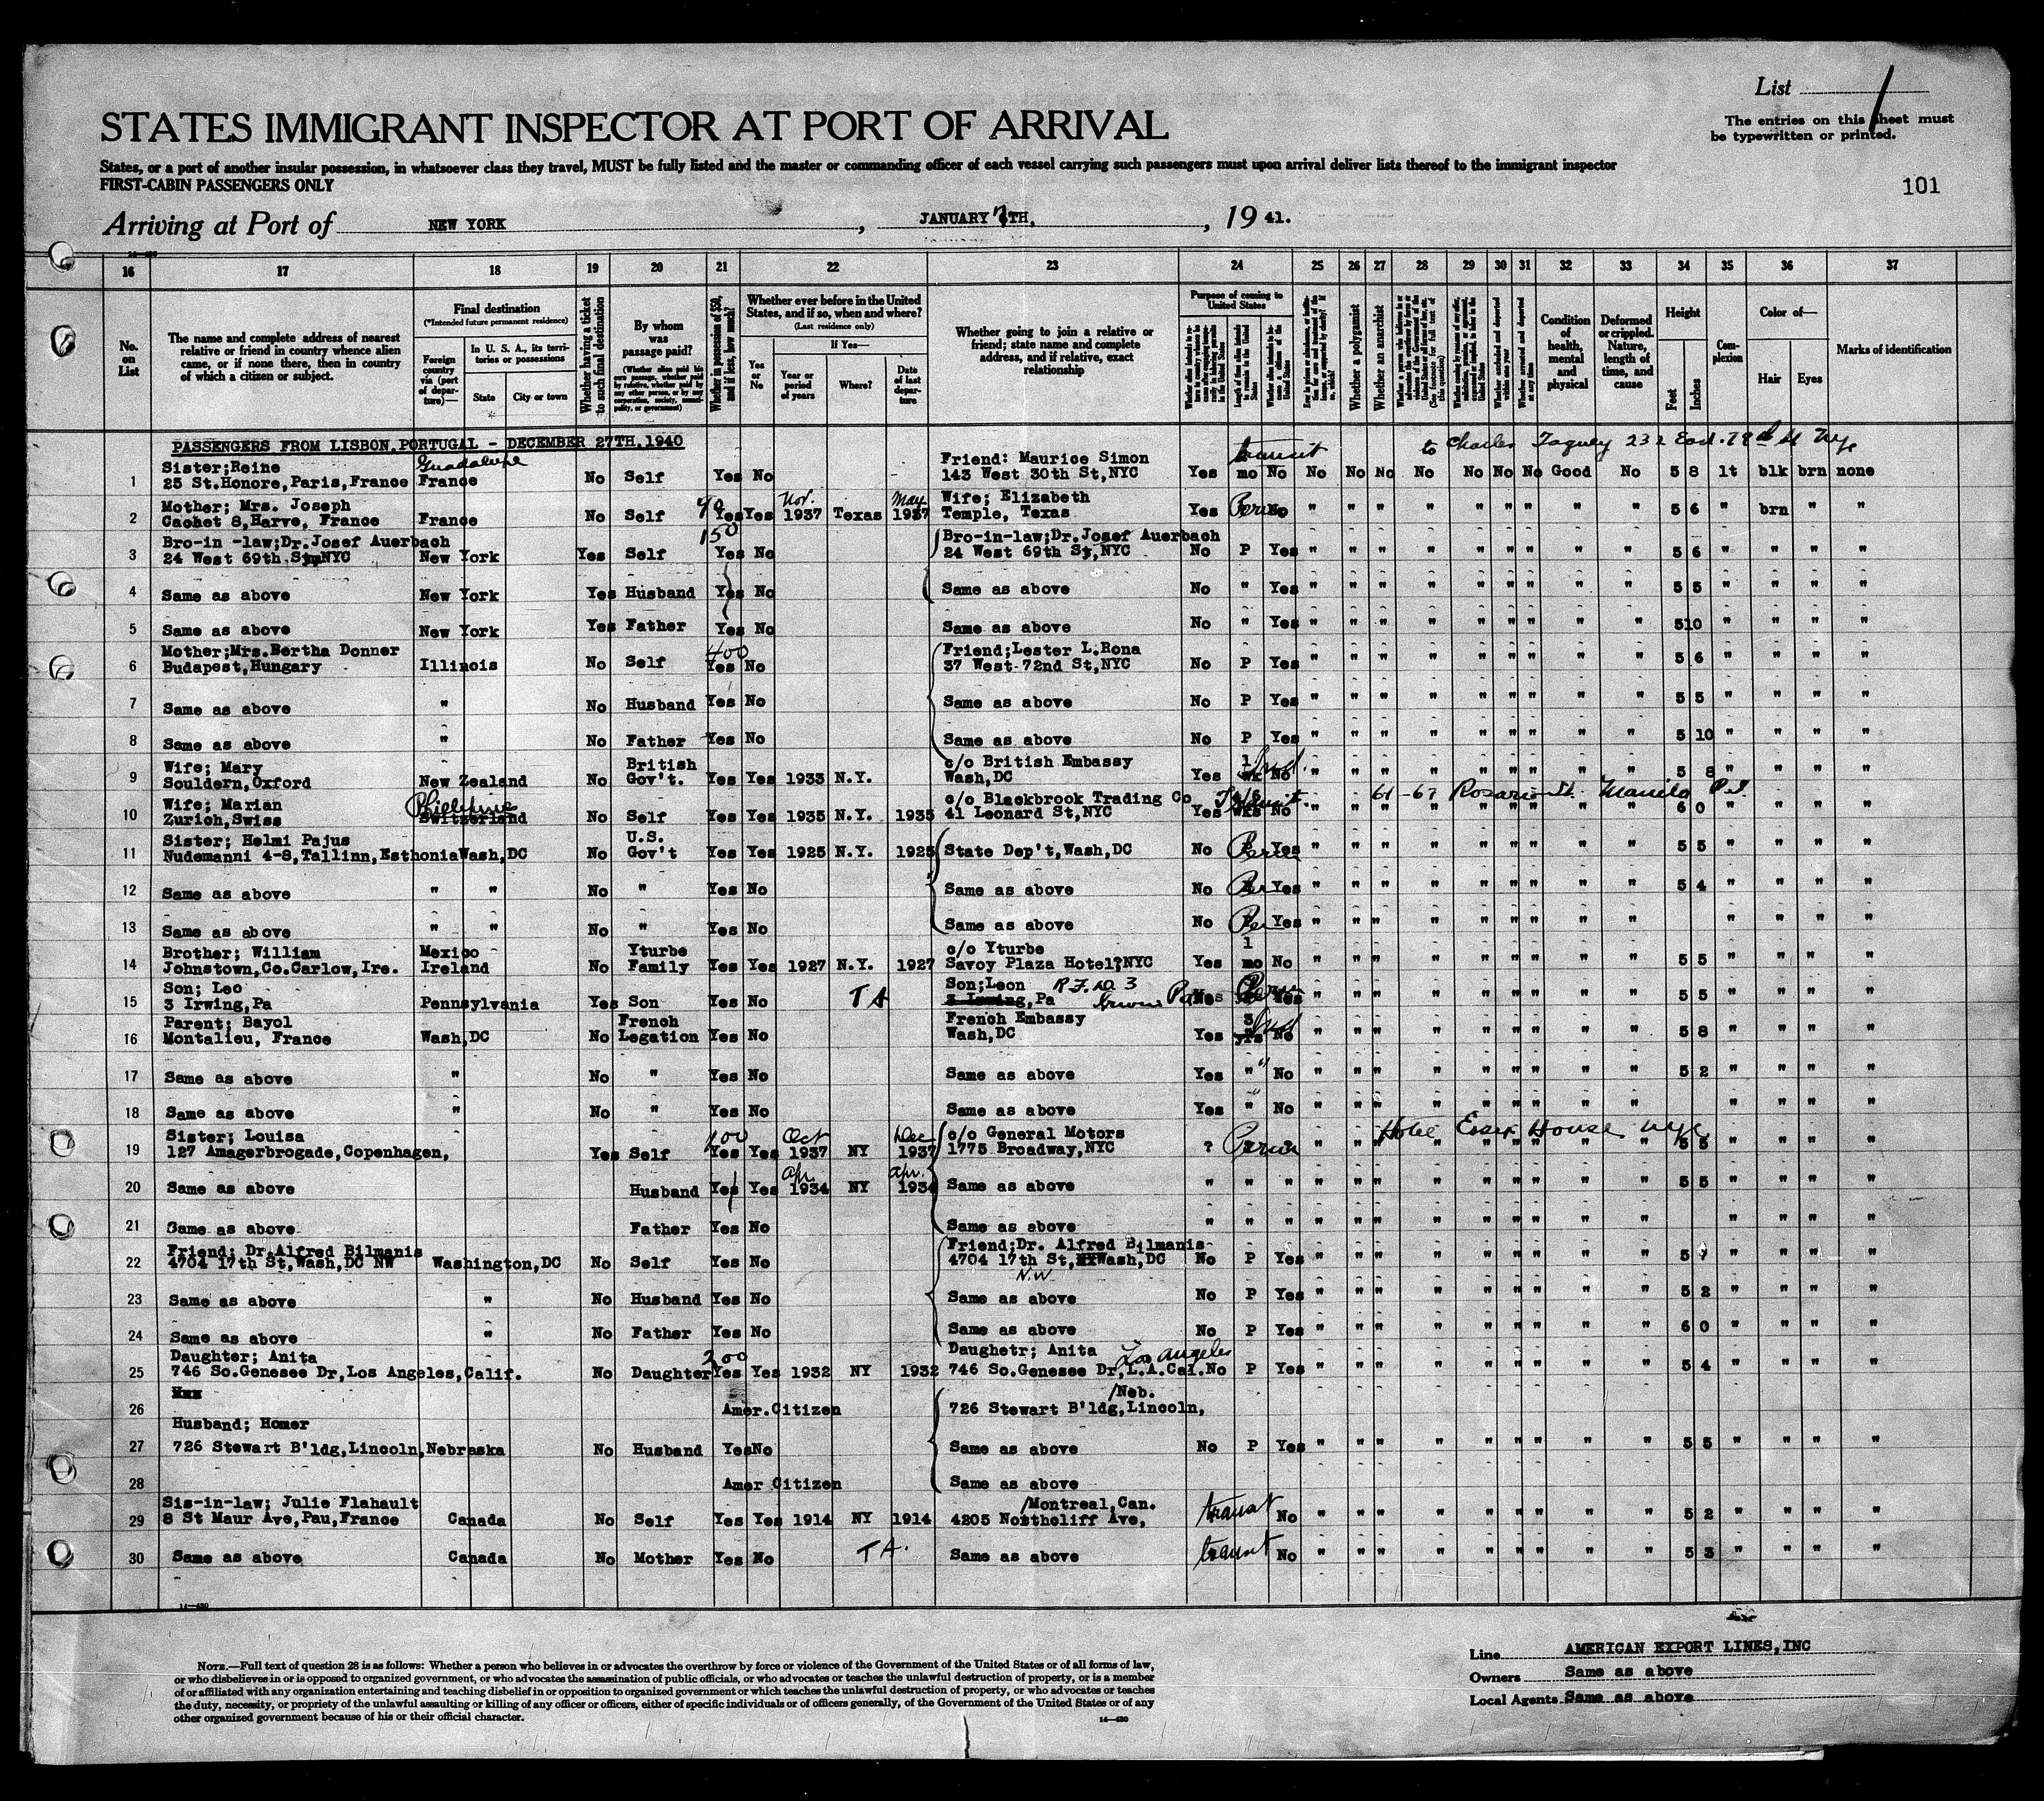 List 1
The entries on this sheet must
be typewritten or printed.
STATES IMMIGRANT INSPECTOR AT PORT OF ARRIVAL
States, or a port of another insular possession, in whatsoever class they travel, MUST be fully listed and the master or commanding officer of each vessel carrying such passengers must upon arrival deliver lists thereof to the immigrant inspector
FIRST-CABIN PASSENGERS ONLY
101
Arriving at Port of NEW YORK, JANUARY 7TH, 19 41.
16 17 18 19 20 21 22 23 24 25 26 27 28 29 30 31 32 33 34 35 36 37
No. on List
The name and complete address of nearest relative or friend in country whence alien came, or if none there, then in country of which a citizen or subject.
Final destination
(*Intended future permanent residence)
Foreign country via (port of departure)—
In U. S. A., its territories or possessions
State
City or town
Whether having a ticket to such final destination
By whom was passage paid?
Whether in possession of $50, and if less, how much?
Whether ever before in the United States, and if so, when and where?
(Last residence only)
Yes or No
If Yes—
Year or period of years
Where?
Date of last departure
Whether going to join a relative or friend; state name and complete address, and if relative, exact relationship
Purpose of coming to United States
Whether a polygamist
Whether an anarchist
Condition of health, mental and physical
Deformed or crippled. Nature, length of time, and cause
Height
Feet
Inches
Complexion
Color of—
Hair
Eyes
Marks of identification
PASSENGERS FROM LISBON, PORTUGAL - DECEMBER 27TH, 1940
transit to Charles 232 East
1 Sister;Reine 25 St.Honore,Paris,France Guadaloupe France No Self Yes No Friend: Maurice Simon 143 West 30th St,NYC Yes mo No No No No No No No No Good No 5 8 lt blk brn none
2 Mother; Mrs. Joseph Cachet 8,Harve, France France No Self 40 Yes Yes Nov. 1937 Texas May 1937 Wife; Elizabeth Temple, Texas Yes Perm No " " " " " " " " " 5 6 " brn " "
3 Bro-in -law;Dr.Josef Auerbach 24 West 69th St, NYC New York Yes Self 150 Yes No Bro-in-law;Dr.Josef Auerbach 24 West 69th St,NYC No P Yes " " " " " " " " " 5 6 " " " "
4 Same as above New York Yes Husband Yes No Same as above No " Yes " " " " " " " " " 5 5 " " " "
5 Same as above New York Yes Father Yes No Same as above No " Yes " " " " " " " " " 5 10 " " " "
6 Mother;Mrs.Bertha Donner Budapest,Hungary Illinois No Self 400 Yes No Friend;Lester L.Rona 37 West 72nd St,NYC No P Yes " " " " " " " " " 5 6 " " " "
7 Same as above " No Husband Yes No Same as above No P Yes " " " " " " " " " 5 5 " " " "
8 Same as above " No Father Yes No Same as above No P Yes " " " " " " " " " 5 10 " " " "
9 Wife; Mary Souldern,Oxford New Zealand No British Gov't. Yes Yes 1933 N.Y. c/o British Embassy Wash,DC Yes 1 wk No " " " " " " " " " 5 8 " " " "
61-67 Rosario St. Manila P.I.
10 Wife; Marian Zurich,Swiss Philippine Switzerland No Self Yes Yes 1935 N.Y. 1935 c/o Blackbrook Trading Co 41 Leonard St,NYC Yes Transit 4/6 wks No " " " " " " " " " 6 0 " " " "
11 Sister; Helmi Pajus Nudemanni 4-8,Tallinn,Esthonia Wash,DC No U.S. Gov't Yes Yes 1925 N.Y. 1925 State Dep't,Wash,DC No Perm Yes " " " " " " " " " 5 5 " " " "
12 Same as above " " No " Yes No Same as above No Per Yes " " " " " " " " " 5 4 " " " "
13 Same as above " " No " Yes No Same as above No Per Yes " " " " " " " " " " " " "
14 Brother; William Johnstown,Co.Carlow,Ire. Mexico Ireland No Yturbe Family Yes Yes 1927 N.Y. 1927 c/o Yturbe Savoy Plaza Hotel,NYC Yes 1 mo No " " " " " " " " " 5 5 " " " "
15 Son; Leo 3 Irwing,Pa Pennsylvania Yes Son Yes No TA Son;Leon R.F.D. 3 3 Irwing,Pa Irwin Pa Perm Yes " " " " " " " " " 5 5 " " " "
16 Parent; Bayol Montalieu, France Wash,DC No French Legation Yes No French Embassy Wash,DC Yes 3 yrs No " " " " " " " " " 5 8 " " " "
17 Same as above " No " Yes No Same as above Yes " No " " " " " " " " " 5 2 " " " "
18 Same as above " No " Yes No Same as above Yes " No " " " " " " " " " " " " "
Hotel Essex House NYC
19 Sister; Louisa 127 Amagerbrogade,Copenhagen, Yes Self 100 Yes Yes Oct 1937 NY Dec 1937 c/o General Motors 1775 Broadway,NYC ? Perm " " " " " " " " " 5 5 " " " "
20 Same as above Husband Yes Yes Apr. 1934 NY Apr. 1934 Same as above " " " " " " " " " " " " 5 5 " " " "
21 Same as above Father Yes No Same as above " " " " " " " " " " " " " " " "
22 Friend; Dr.Alfred Bilmanis 4704 17th St,Wash,DC NW Washington,DC No Self Yes No Friend;Dr. Alfred Bilmanis 4704 17th St, Wash,DC N.W No P Yes " " " " " " " " " 5 " " " "
23 Same as above " No Husband Yes No Same as above No P Yes " " " " " " " " " 5 2 " " " "
24 Same as above " No Father Yes No Same as above No P Yes " " " " " " " " " 6 0 " " " "
25 Daughter; Anita 746 So.Genesee Dr,Los Angeles,Calif. No Daughter 200 Yes Yes 1932 NY 1932 Daughetr; Anita Los Angeles 746 So.Genesee Dr,L.A.Cal. No P Yes " " " " " " " " " 5 4 " " " "
26 Amer.Citizen 726 Stewart B'ldg,Lincoln, /Neb.
27 Husband; Homer 726 Stewart B'ldg,Lincoln,Nebraska No Husband Yes No Same as above No P Yes " " " " " " " " " 5 5 " " " "
28 Amer Citizen Same as above
29 Sis-in-law; Julie Flahault 8 St Maur Ave,Pau,France Canada No Self Yes Yes 1914 NY 1914 /Montreal,Can. 4205 Northcliff Ave, transit No " " " " " " " " " 5 2 " " " "
30 Same as above Canada No Mother Yes No TA. Same as above transit No " " " " " " " " " 5 3 " " " "
14—430
NOTE.—Full text of question 28 is as follows: Whether a person who believes in or advocates the overthrow by force or violence of the Government of the United States or of all forms of law,
or who disbelieves in or is opposed to organized government, or who advocates the assassination of public officials, or who advocates or teaches the unlawful destruction of property, or is a member
of or affiliated with any organization entertaining and teaching disbelief in or opposition to organized government or which teaches the unlawful destruction of property, or who advocates or teaches
the duty, necessity, or propriety of the unlawful assaulting or killing of any officer or officers, either of specific individuals or of officers generally, of the Government of the United States or of any
other organized government because of his or their official character.
14—430
Line AMERICAN EXPORT LINES,INC
Owners Same as above
Local Agents Same as above